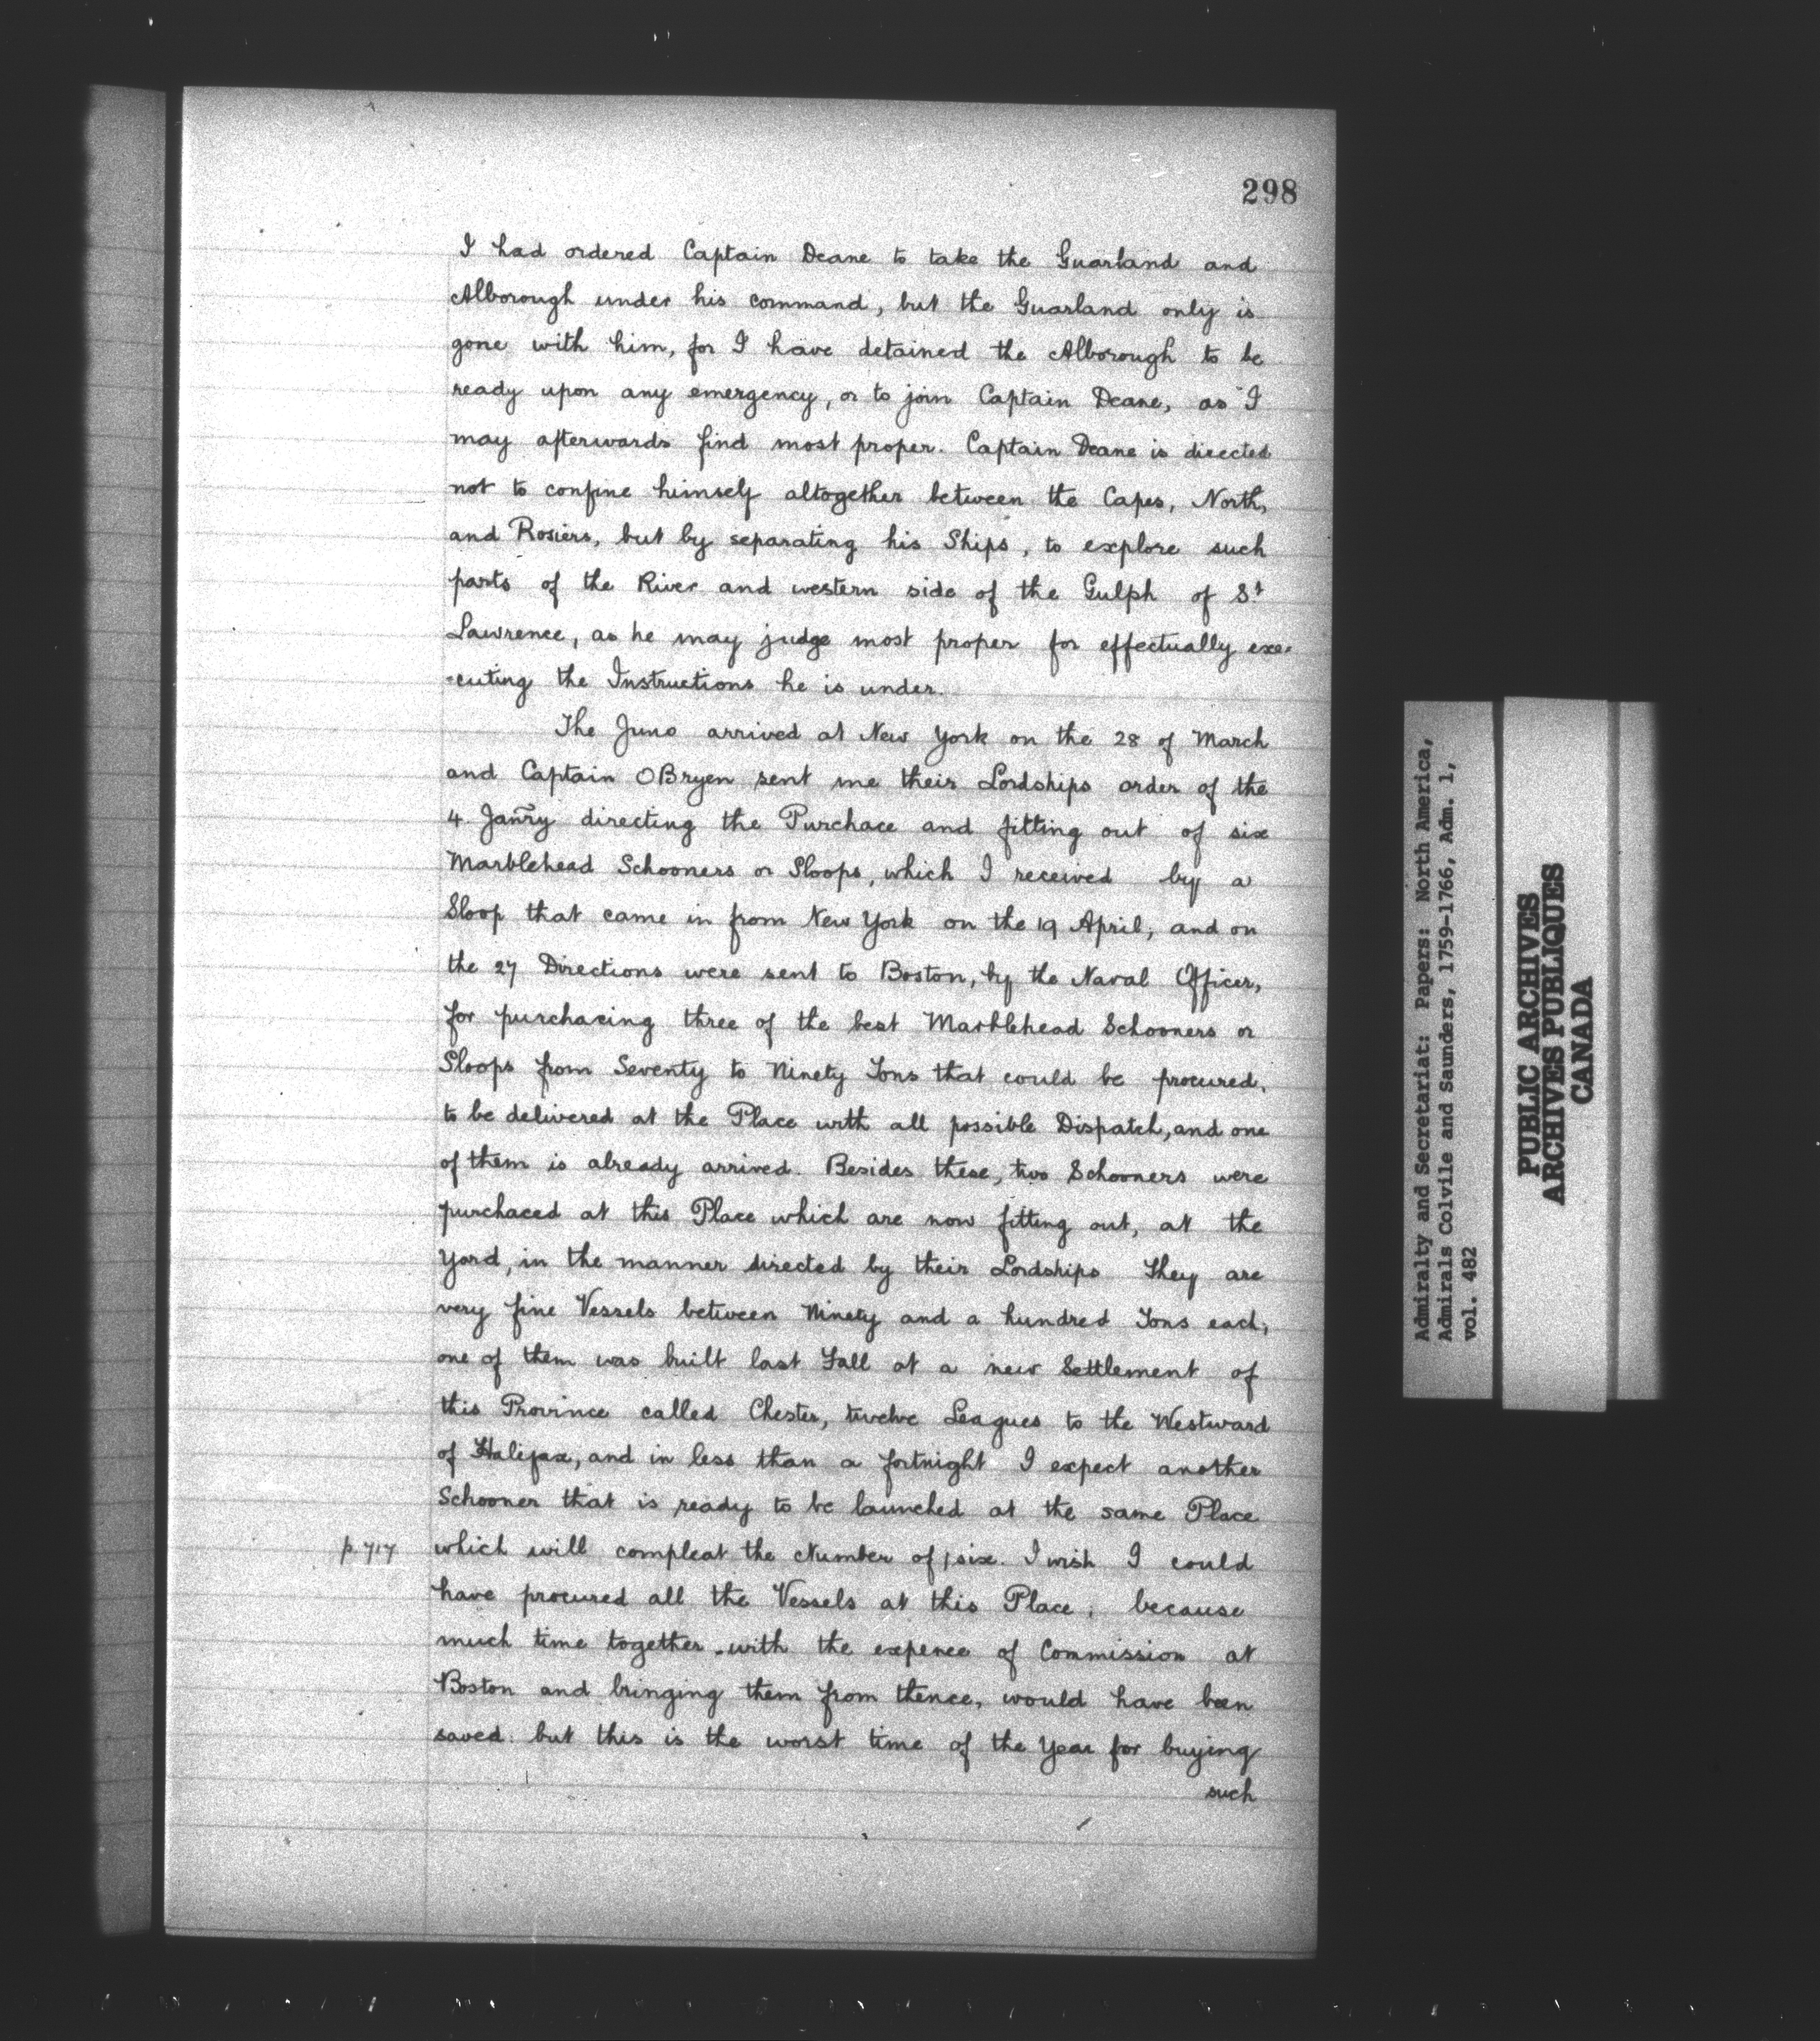 298
I had ordered Captain Deane to take the Guarland and
Alborough under his command, but the Guarland only is
gone with him, for I have detained the Alborough to be
ready upon any emergency, or to join Captain Deane, as I
may afterwards find most proper. Captain Deane is directed
not to confine himself altogether between the Capes, North,
and Rosiers, but by separating his Ships, to explore such
parts of the River and western side of the Gulph of St
Lawrence, as he may judge most proper for effectually exe-
-cuting the Instructions he is under.
The Juno arrived at New York on the 28 of March
and Captain OBryen sent me their Lordships order of the
4 Jañry directing the Purchace and fitting out of six
Marblehead Schooners or Sloops, which I received by a
Sloop that came in from New York on the 19 April, and on
the 27 Directions were sent to Boston, by the Naval Officer,
for purchasing three of the best Marblehead Schooners or
Sloops from Seventy to Ninety Tons that could be procured,
to be delivered at the Place with all possible Dispatch, and one
of them is already arrived. Besides these, two Schooners were
purchaced at this Place which are now fitting out, at the
Yard, in the manner directed by their Lordships They are
very fine Vessels between Ninety and a hundred Tons each,
one of them was built last Fall at a new Settlement of
this Province called Chester, twelve Leagues to the Westward
of Halifax, and in less than a fortnight I expect another
Schooner that is ready to be launched at the same Place
p. 717 which will compleat the Number of / six. I wish I could
have procured all the Vessels at this Place, because
much time together with the expence of Commission at
Boston and bringing them from thence, would have been
saved: but this is the worst time of the Year for buying
such
Admiralty and Secretariat: Papers: North America,
Admirals Colvile and Saunders, 1759-1766, Adm. 1,
vol. 482
PUBLIC ARCHIVES
ARCHIVES PUBLIQUES
CANADA